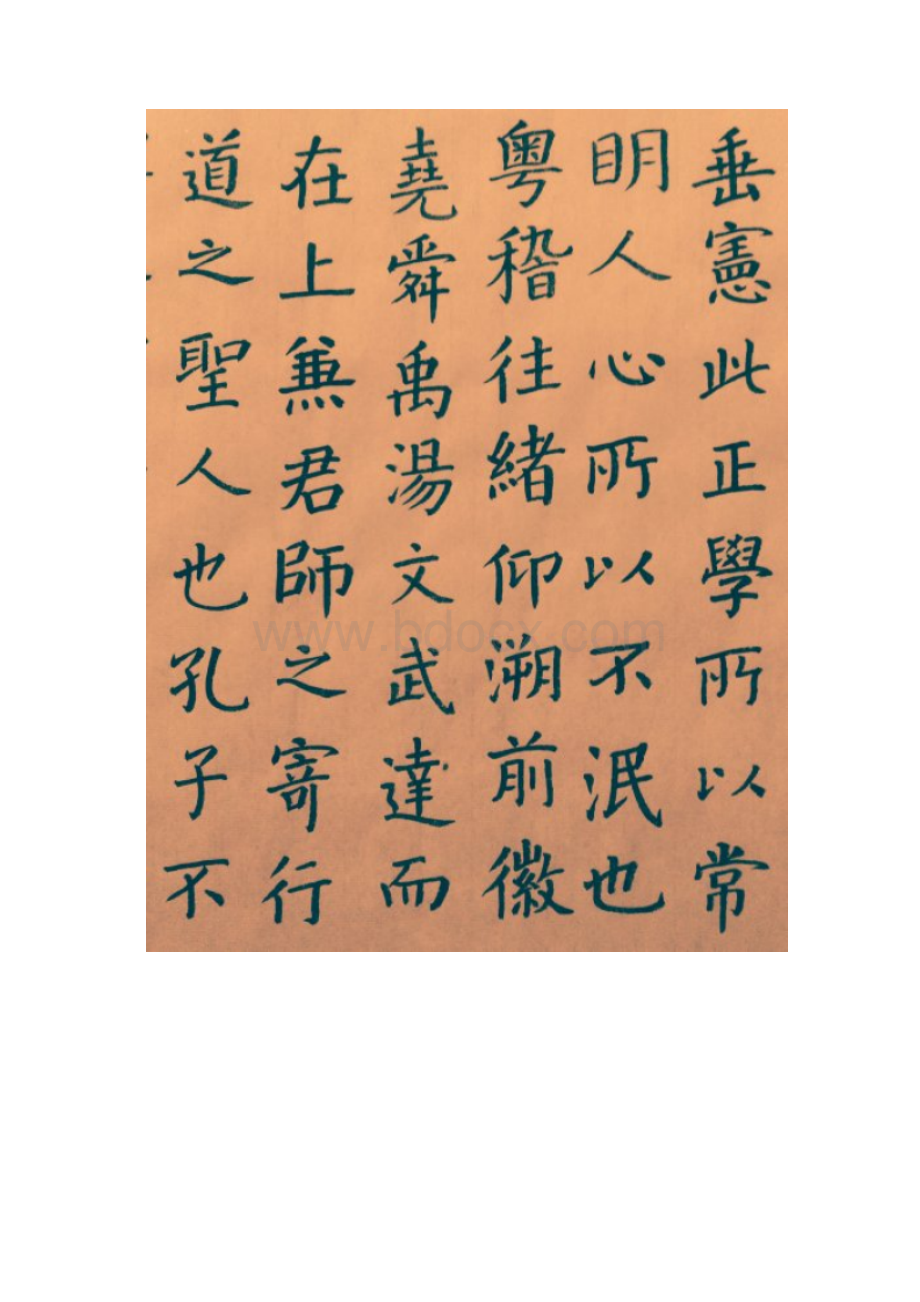 垂憲此正學所以常
明人心所以不泯也
粵稽往緒仰溯前徽
堯舜禹湯文武達而
在上兼君師之寄行
道之聖人也孔子不
www.bdocx.com